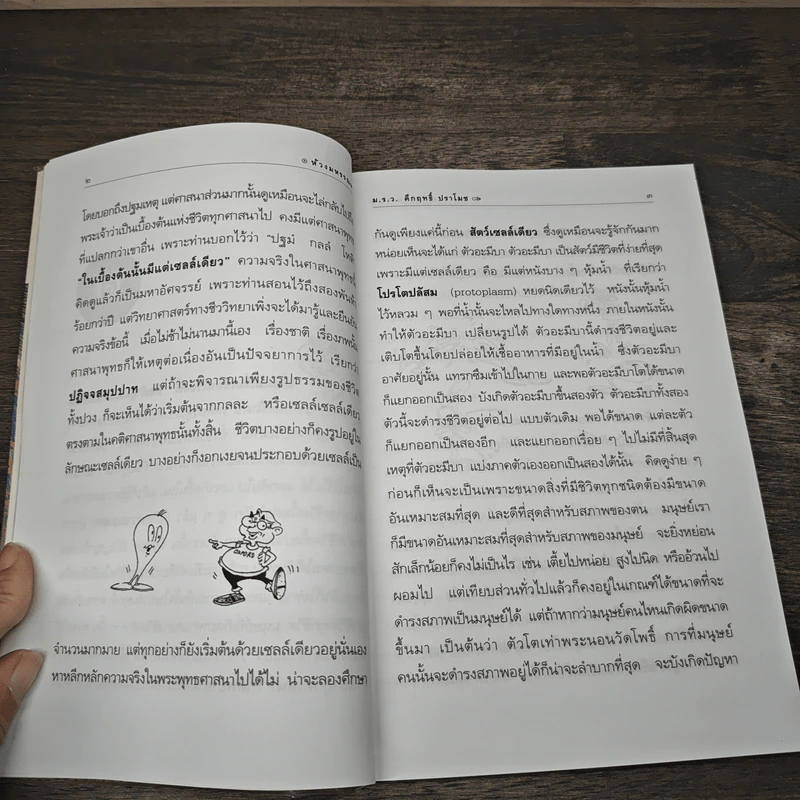 ๒
๏ ห้วงมหรรณ
โดยบอกถึงปฐมเหตุ แต่ศาสนาส่วนมากนั้นดูเหมือนจะไล่กลับไปถึง
พระเจ้าว่าเป็นเบื้องต้นแห่งชีวิตทุกศาสนาไป คงมีแต่ศาสนาพุทธ
ที่แปลกกว่าเขาอื่น เพราะท่านบอกไว้ว่า "ปฐมํ กลลํ โหติ
"ในเบื้องต้นนั้นมีแต่เซลล์เดียว" ความจริงในศาสนาพุทธนี้
คิดดูแล้วก็เป็นมหาอัศจรรย์ เพราะท่านสอนไว้ถึงสองพันห้า
ร้อยกว่าปี แต่วิทยาศาสตร์ทางชีววิทยาเพิ่งจะได้มารู้และยืนยัน
ความจริงข้อนี้ เมื่อไม่ช้าไม่นานมานี้เอง เรื่องชาติ เรื่องภพนั้น
ศาสนาพุทธก็ให้เหตุต่อเนื่องอันเป็นปัจจยาการไว้ เรียกว่า
ปฏิจจสมุปปาท แต่ถ้าจะพิจารณาเพียงรูปธรรมของชีวิต
ทั้งปวง ก็จะเห็นได้ว่าเริ่มต้นจากกลละ หรือเซลล์เซลล์เดียว
ตรงตามในคติศาสนาพุทธนั้นทั้งสิ้น ชีวิตบางอย่างก็คงรูปอยู่ใน
ลักษณะเซลล์เดียว บางอย่างก็งอกเงยจนประกอบด้วยเซลล์เป็น
จำนวนมากมาย แต่ทุกอย่างก็ยังเริ่มต้นด้วยเซลล์เดียวอยู่นั่นเอง
หาหลีกหลักความจริงในพระพุทธศาสนาไปได้ไม่ น่าจะลองศึกษา
ม.ร.ว. คึกฤทธิ์ ปราโมช
๓
กันดูเพียงแค่นี้ก่อน สัตว์เซลล์เดียว ซึ่งดูเหมือนจะรู้จักกันมาก
หน่อยเห็นจะได้แก่ ตัวอะมีบา ตัวอะมีบา เป็นสัตว์มีชีวิตที่ง่ายที่สุด
เพราะมีแต่เซลล์เดียว คือ มีแต่หนังบาง ๆ หุ้มน้ำ ที่เรียกว่า
โปรโตปลัสม (protoplasm) หยดนิดเดียวไว้ หนังนั้นหุ้มน้ำ
ไว้หลวม ๆ พอที่น้ำนั้นจะไหลไปทางใดทางหนึ่ง ภายในหนังนั้น
ทำให้ตัวอะมีบา เปลี่ยนรูปได้ ตัวอะมีบานี้ดำรงชีวิตอยู่และ
เติบโตขึ้นโดยปล่อยให้เชื้ออาหารที่มีอยู่ในน้ำ ซึ่งตัวอะมีบา
อาศัยอยู่นั้น แทรกซึมเข้าไปในกาย และพอตัวอะมีบาโตได้ขนาด
ก็แยกออกเป็นสอง บังเกิดตัวอะมีบาขึ้นสองตัว ตัวอะมีบาทั้งสอง
ตัวนี้จะดำรงชีวิตอยู่ต่อไป แบบตัวเดิม พอได้ขนาด แต่ละตัว
ก็แยกออกเป็นสองอีก และแยกออกเรื่อย ๆ ไปไม่มีที่สิ้นสุด
เหตุที่ตัวอะมีบา แบ่งภาคตัวเองออกเป็นสองได้นั้น คิดดูง่าย ๆ
ก่อนก็เห็นจะเป็นเพราะขนาดสิ่งที่มีชีวิตทุกชนิดต้องมีขนาด
อันเหมาะสมที่สุด และดีที่สุดสำหรับสภาพของตน มนุษย์เรา
ก็มีขนาดอันเหมาะสมที่สุดสำหรับสภาพของมนุษย์ จะยิ่งหย่อน
สักเล็กน้อยก็คงไม่เป็นไร เช่น เตี้ยไปหน่อย สูงไปนิด หรืออ้วนไป
ผอมไป แต่เทียบส่วนทั่วไปแล้วก็คงอยู่ในเกณฑ์ได้ขนาดที่จะ
ดำรงสภาพเป็นมนุษย์ได้ แต่ถ้าหากว่ามนุษย์คนไหนเกิดผิดขนาด
ขึ้นมา เป็นต้นว่า ตัวโตเท่าพระนอนวัดโพธิ์ การที่มนุษย์
คนนั้นจะดำรงสภาพอยู่ได้ก็น่าจะลำบากที่สุด จะบังเกิดปัญหา